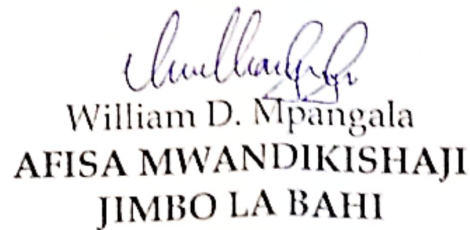 William D. Mpangala
AFISA MWANDIKISHAJI
JIMBO LA BAHI